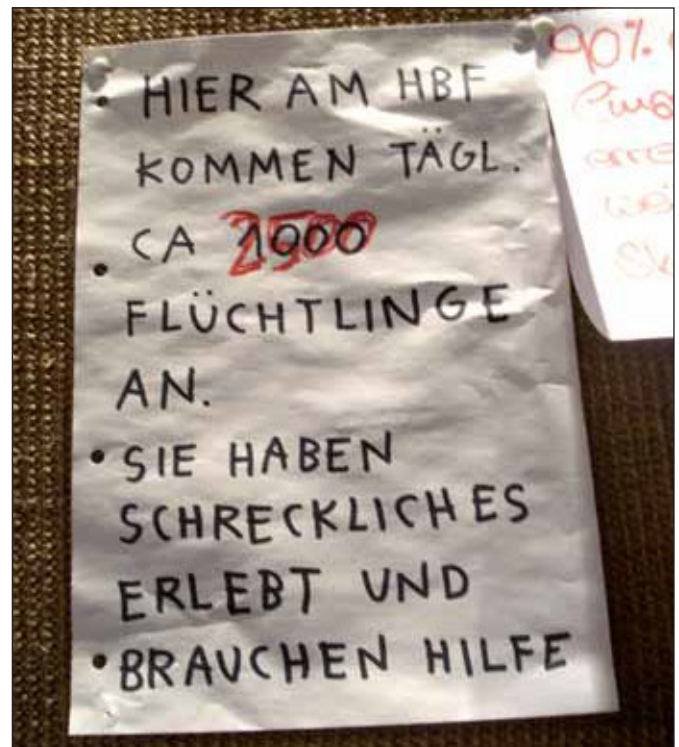 HIER AM HBF
KOMMEN TÄGL.
CA 2500
FLÜCHTLINGE
AN.
• SIE HABEN
SCHRECKLICHES
ERLEBT UND
• BRAUCHEN HILFE
90%